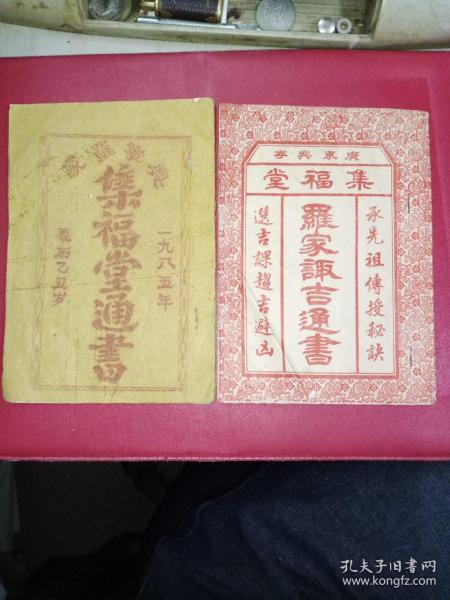 集福堂通書
一九八五年
夏历乙丑岁
廣東興寧
集福堂
承先祖傳授秘訣
羅家諏吉通書
選吉課趨吉避凶
孔夫子旧书网
www.kongfz.com